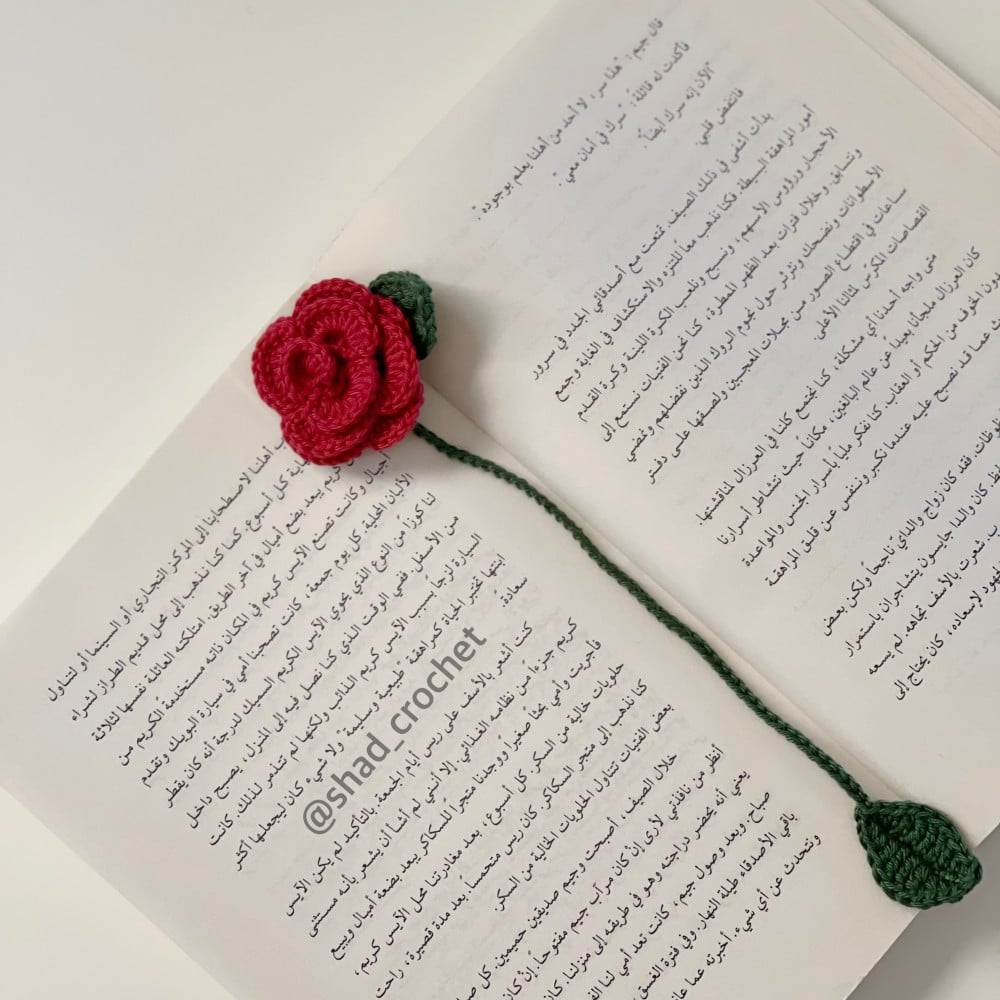 قال جيم: "هذا سر، لا أحد من أهلنا يعلم بوجوده".
فأكدت له قائلة: "سرك في أمان معي".
"الآن إنه سرك أيضاً".
فانتفض قلبي
بدأت أشفى في ذلك الصيف. تمتعت مع أصدقائي الجدد في سرور
أمور المراهقة البسيطة. فكنا نذهب معاً للتنزه والاستكشاف في الغابة وجمع
الأحجار ورؤوس الأسهم، ونسبح ونلعب الكرة اللينة وكرة القدم
ونتسابق. وخلال فترات بعد الظهر الممطرة، كنا نحن الفتيات نستمع إلى
الأسطوانات ونضحك ونثرثر حول نجوم الروك الذين نفضلهم ونمضي
ساعات في اقتطاع الصور من مجلات المعجبين ولصقها على دفتر
القصاصات المكرّس لمثالنا الأعلى.
متى واجه أحدنا أي مشكلة، كنا نجتمع كلنا في العرزال لمناقشتها
كان العرزال ملجأنا بعيداً عن عالم البالغين، مكاناً حيث نتشاطر أسرارنا
بدون الخوف من الحكم أو العقاب. كنا نفكر ملياً بأسرار الجنس والمواعدة
عما قد نصبح عليه عندما نكبر وننفس عن قلق المراهقة
فقد كان زواج والداي ناجحاً ولكن بعض
كان والدا جايسون يتشاجران باستمرار
شعرت بالأسف تجاهه. لم يسعه
لإسعاده، كان يحتاج إلى
أهلنا لاصطحابنا الى المركز التجاري أو السينما أو لتناول
كل أسبوع. كما كنا نذهب الى محل قديم الطراز لشراء
كريم يبعد بضع أميال في آخر الطريق. امتلكته العائلة نفسها لثلاثة
أجيال وكانت تصنع الآيس كريم في المكان ذاته مستخدمة الكريم من
الألبان المحلية. كل يوم جمعة، كانت تصحبنا أمي في سيارة البويك وتقدم
لنا كوزاً من النوع الذي يحوي الآيس الكريم السميك لدرجة أنه كان يقطر
من الأسفل. ففي الوقت الذي كنا نصل فيه الى المنزل، يصبح داخل
السيارة لزجاً بسبب الآيس كريم الذائب ولكنها لم تتذمر لذلك. كانت
ابنتها تختبر الحياة كمراهقة "طبيعية وسليمة" ولا شيء كان ليجعلها أكثر
سعادة.
كنت أشعر بالأسف على ريس أيام الجمعة. بالتأكيد لم يكن الآيس
كريم جزءاً من نظامه الغذائي. إلا أنني لم أشأ أن يشعر بأنه مستثنى
فأجريت وأمي بحثاً صغيراً ووجدنا متجراً للسكاكر يبعد بضعة أميال ويبيع
حلويات خالية من السكر. كل أسبوع، بعد مغادرتنا محل الآيس كريم،
كنا نذهب إلى متجر السكاكر. كان ريس متحمساً. بعد مدة قصيرة، راحت
بعض الفتيات تتناول الحلويات الخالية من السكر.
خلال الصيف، أصبحت وجيم صديقين حميمين. كل
أنظر من نافذتي لأرى إن كان مرآب جيم مفتوحاً. إن كان
يعني أنه يحضر دراجته وهو في طريقه الى منزلنا. كان
صباح. وبعد وصول جيم، كانت تعد أمي لنا
باقي الأصدقاء طيلة النهار. وفي فترة الغسق
ونتحدث عن أي شيء. أخبرته عما
@shad_crochet